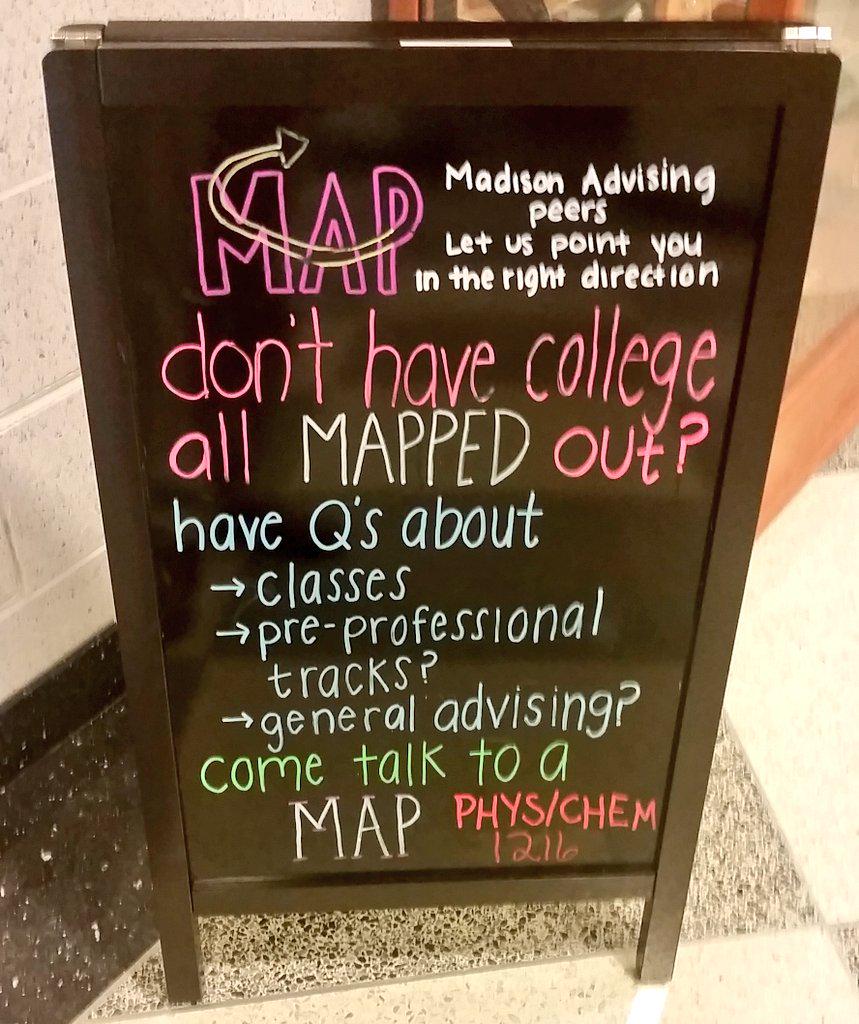 MAP
Madison Advising
peers
Let us point you
in the right direction
don't have college
all MAPPED out?
have Q's about
→ classes
→ pre-professional
tracks?
→ general advising?
come talk to a
MAP PHYS/CHEM
1216